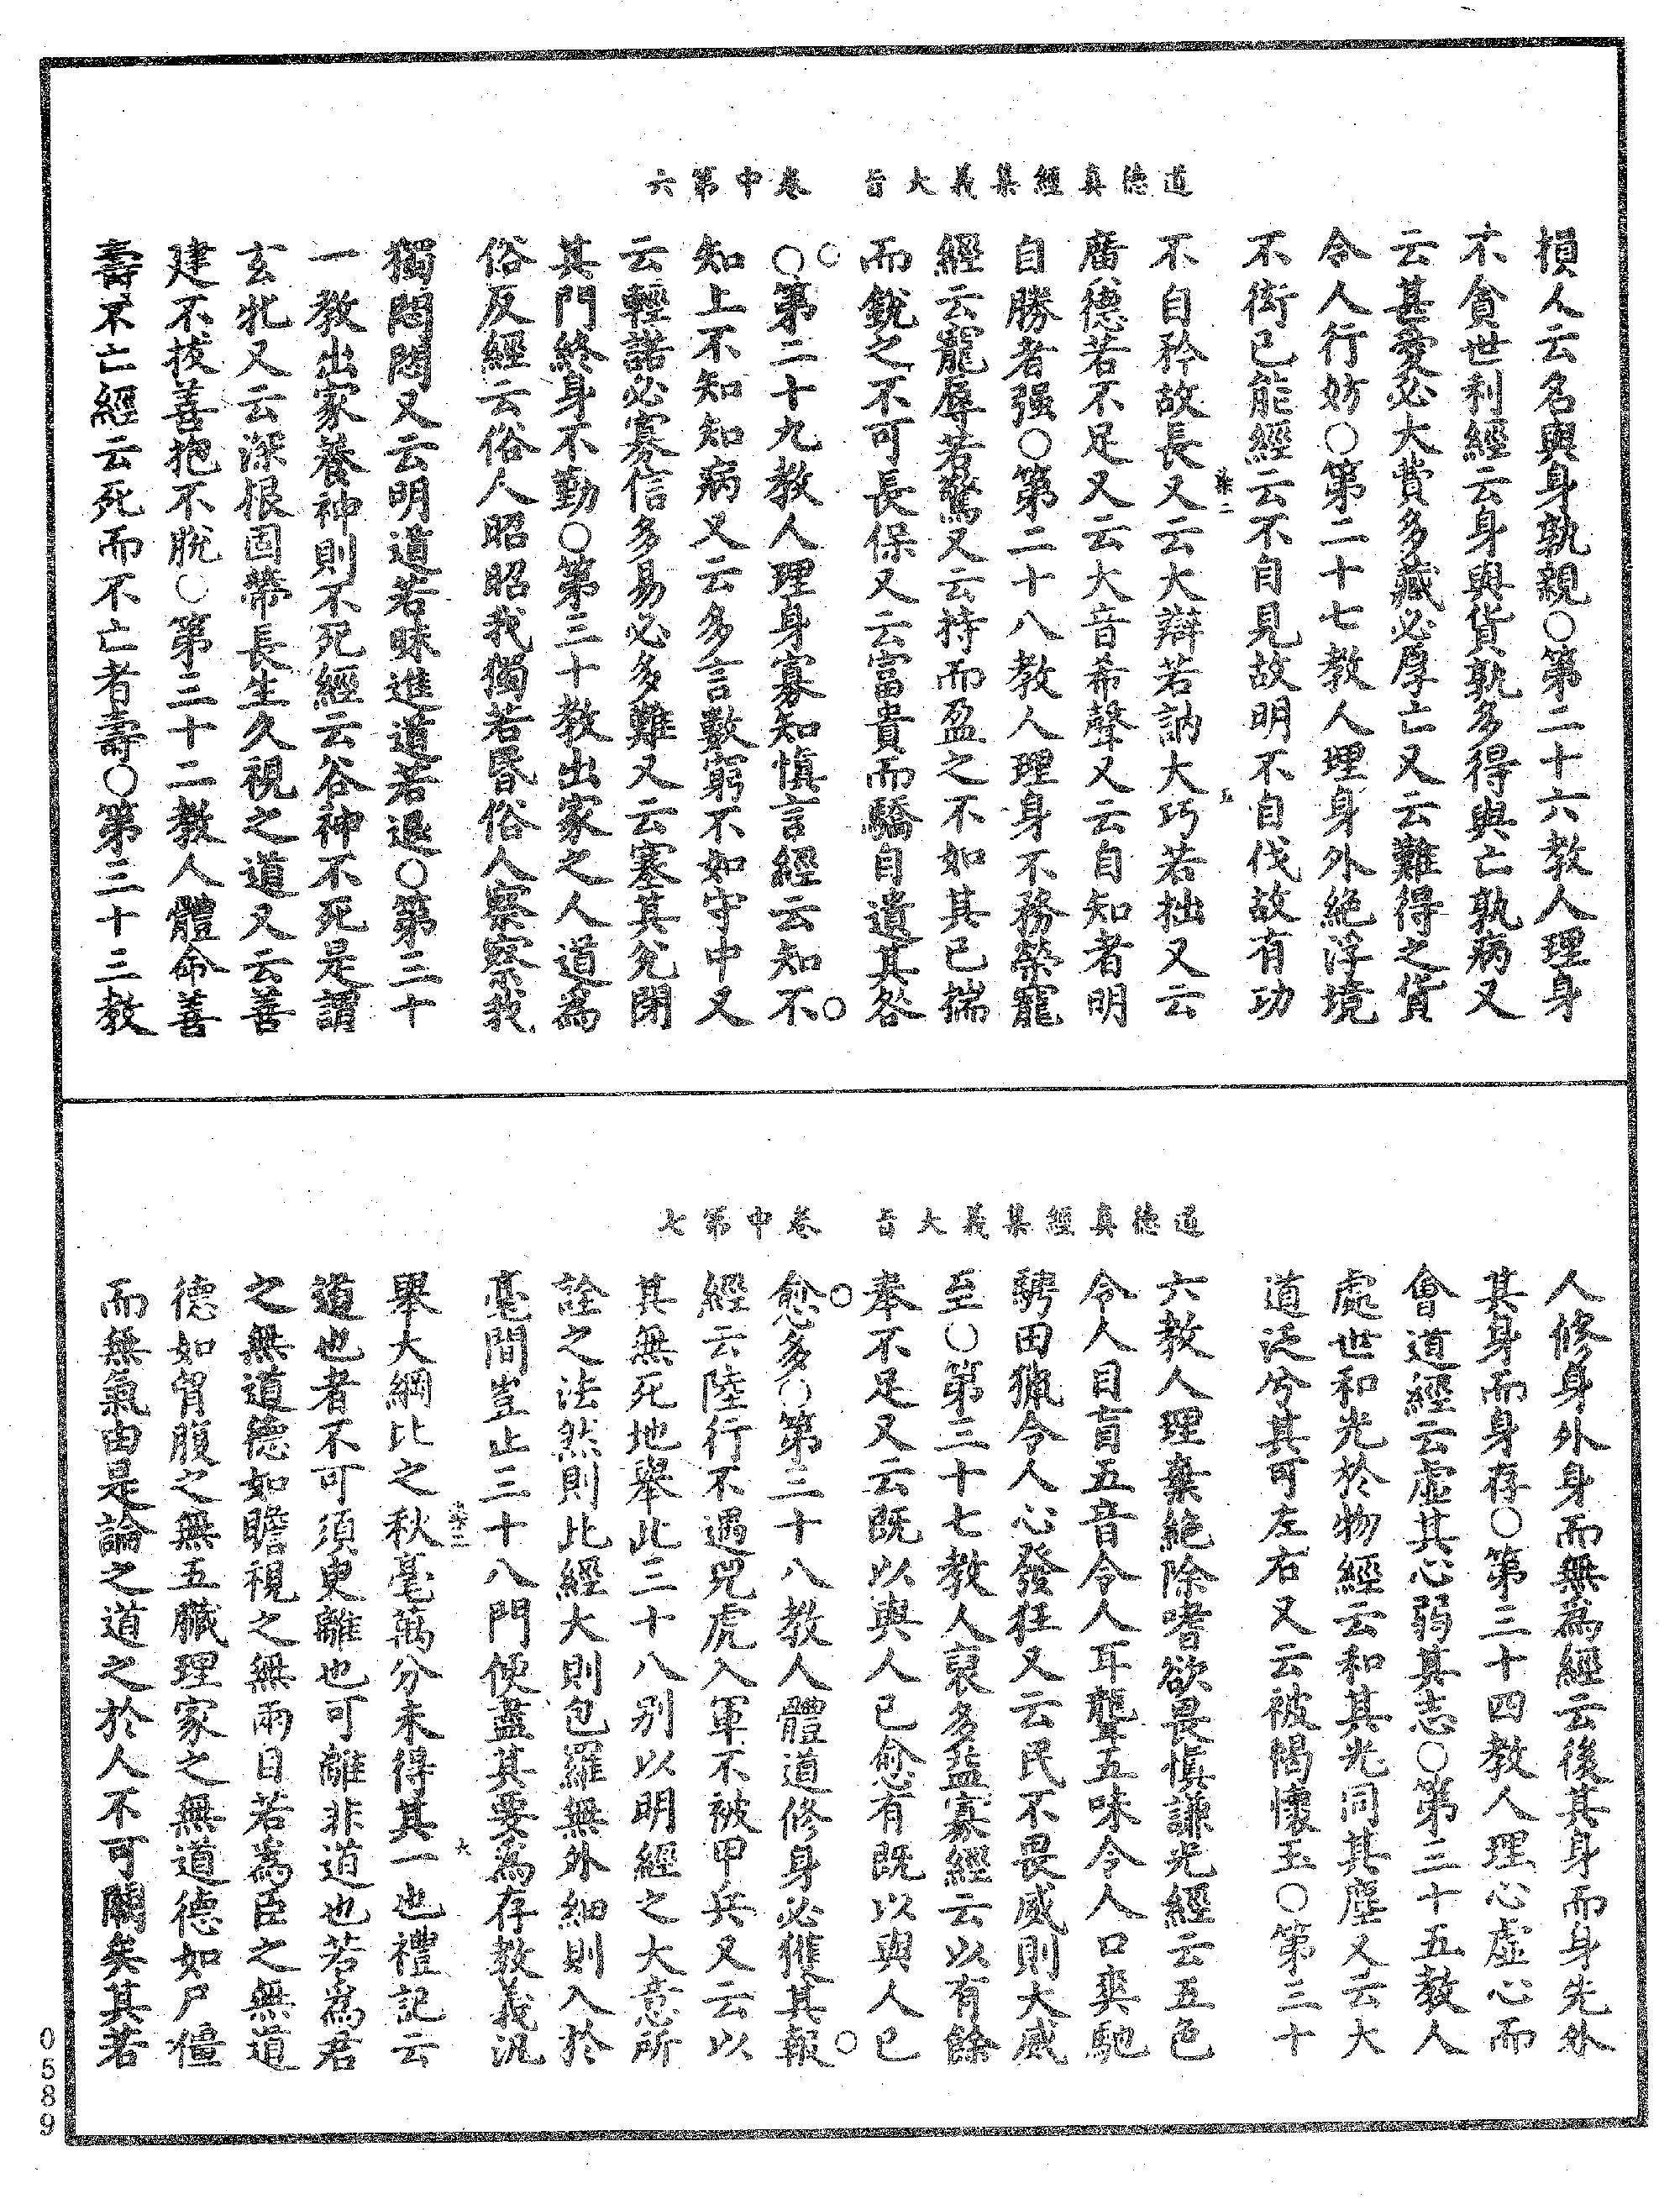 道德真經集義大旨　卷中第六
損人云名與身孰親○第二十六教人理身
不貪世利經云身與貨孰多得與亡孰病又
云甚愛必大費多藏必厚亡又云難得之貨
令人行妨○第二十七教人理身外絶浮境
不衒已能經云不自見故明不自伐故有功
不自矜故長又云大辯若訥大巧若拙又云
廣德若不足又云大音希聲又云自知者明
自勝者强○第二十八教人理身不務榮寵
經云寵辱若驚又云持而盈之不如其已揣
而銳之不可長保又云富貴而驕自遺其咎
○第二十九教人理身寡知慎言經云知不
知上不知知病又云多言數窮不如守中又
云輕諾必寡信多易必多難又云塞其兌閉
其門終身不勤○第三十教出家之人道為
俗反經云俗人昭昭我獨若昬俗人察察我
獨悶悶又云明道若昧進道若退○第三十
一教出家養神則不死經云谷神不死是謂
玄牝又云深根固蒂長生久視之道又云善
建不拔善抱不脫○第三十二教人體命善
壽不亡經云死而不亡者壽○第三十三教
道德真經集義大旨　卷中第七
人修身外身而無為經云後其身而身先外
其身而身存○第三十四教人理心虛心而
會道經云虛其心弱其志○第三十五教人
處世和光於物經云和其光同其塵又云大
道泛兮其可左右又云被褐懷玉○第三十
六教人理棄絶除嗜欲畏慎謙光經云五色
令人目盲五音令人耳聾五味令人口爽馳
騁田獵令人心發狂又云民不畏威則大威
至○第三十七教人裒多益寡經云以有餘
奉不足又云既以與人已愈有既以與人已
愈多○第三十八教人體道修身必獲其報
經云陸行不遇兕虎入軍不被甲兵又云以
其無死地舉此三十八别以明經之大意所
詮之法然則此經大則包羅無外細則入於
毫間豈止三十八門便盡其要為存教義汎
舉大綱比之秋毫萬分未得其一也禮記云
道也者不可須臾離也可離非道也若為君
之無道德如瞻視之無兩目若為臣之無道
德如胷腹之無五臟理家之無道德如尸殭
而無氣由是論之道之於人不可闕矣其若
0589